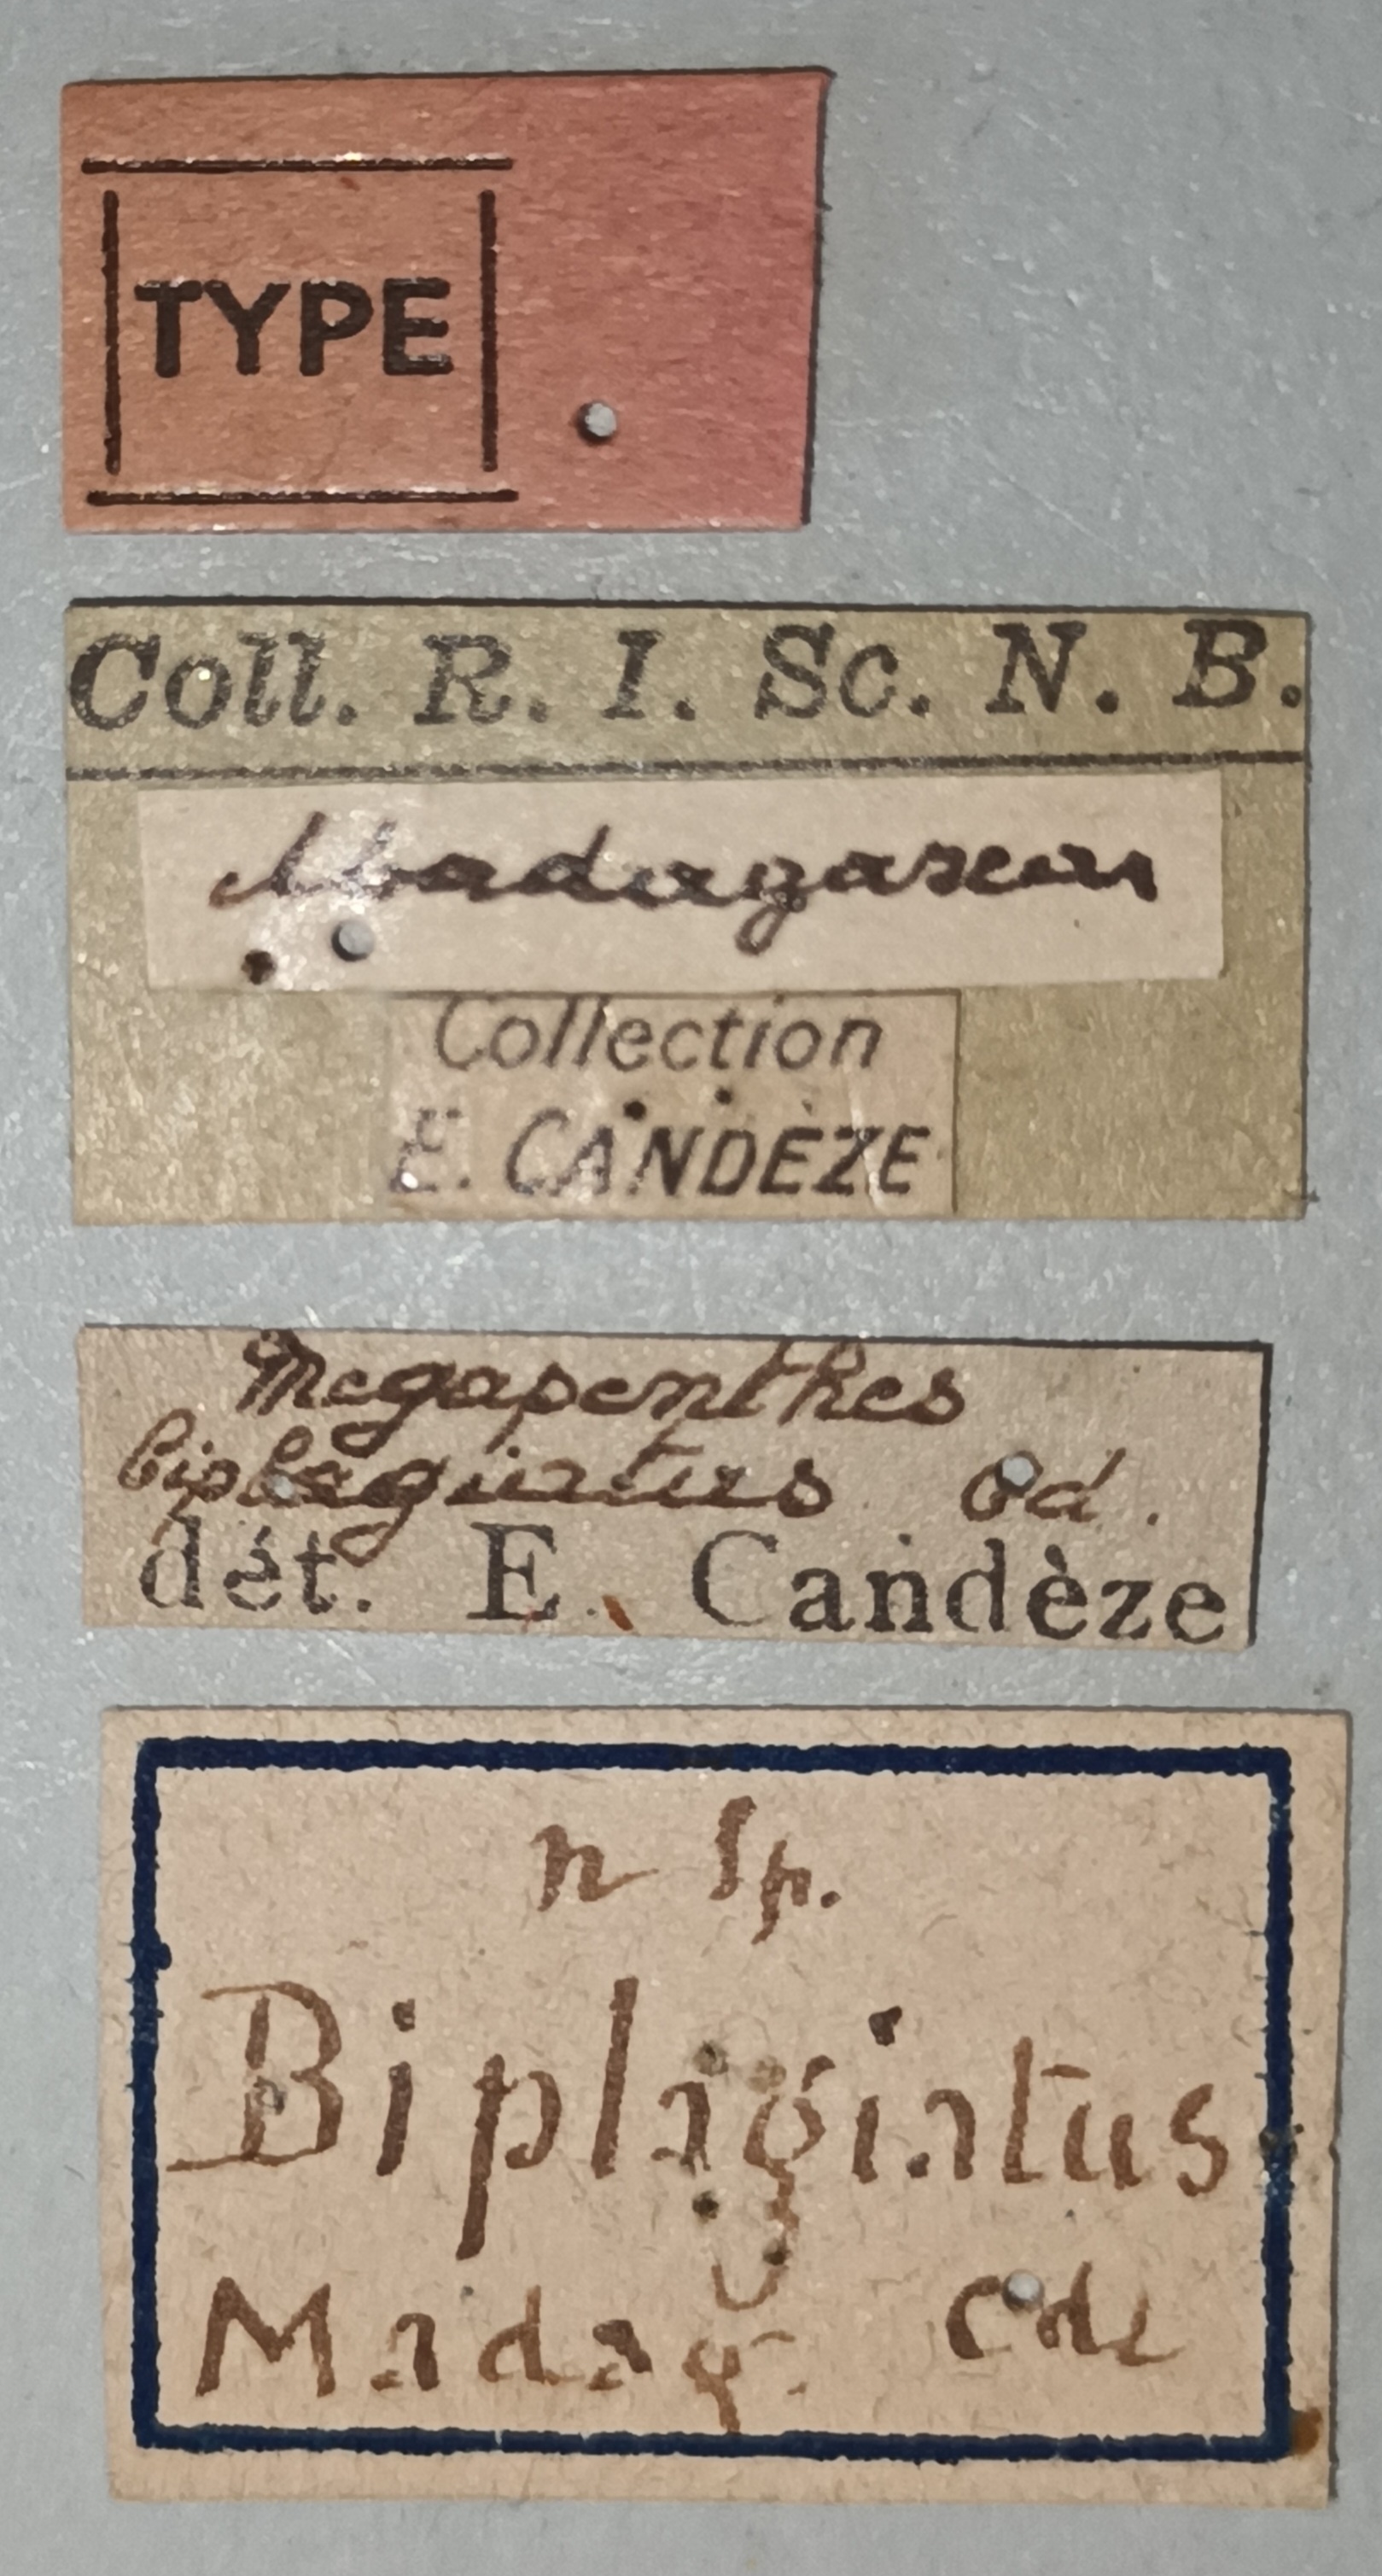 TYPE
Coll. R. I. Sc. N. B.
Madagascar
Collection
E. CANDÈZE
Megapenthes
biplagiatus Cd.
dét. E. Candèze
n Sp.
Biplagiatus
Madag. Cdz